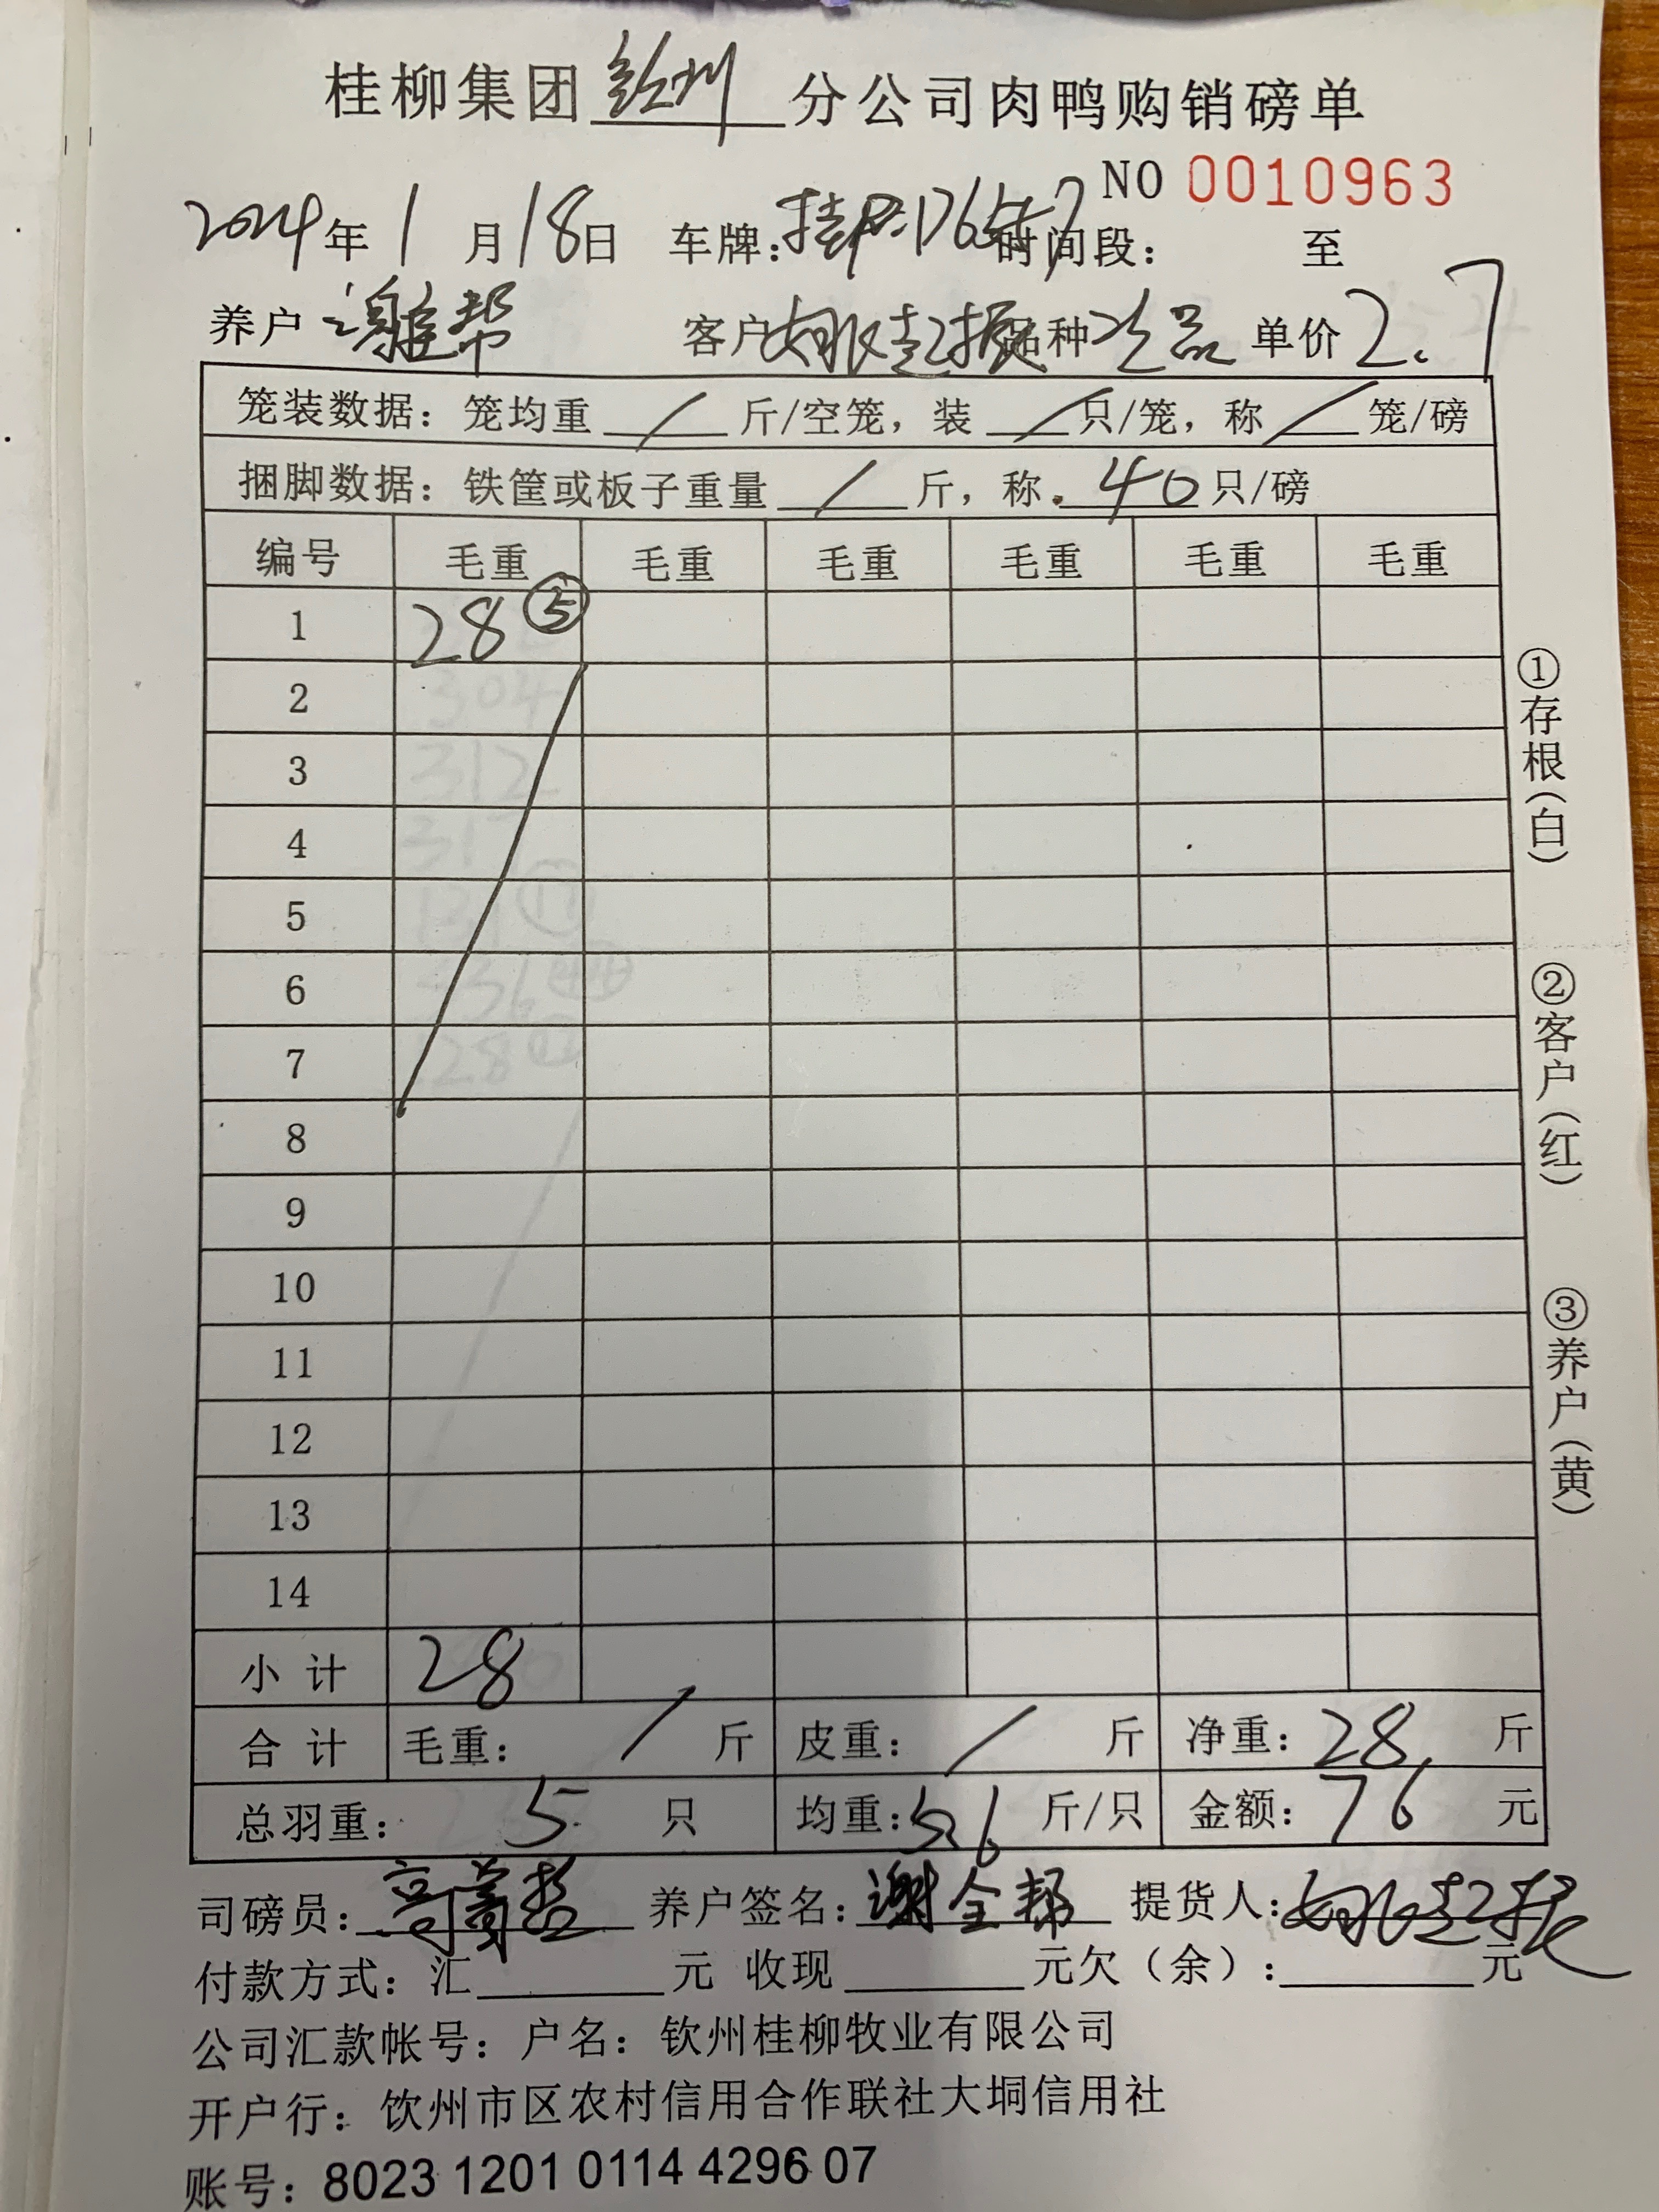 桂柳集团 钦州 分公司肉鸭购销磅单
NO 0010963
2024年1月18日 车牌: 时间段: 至
养户 谢全帮 客户 姚起振 品种 次品 单价 2.7
笼装数据: 笼均重 / 斤/空笼, 装 / 只/笼, 称 / 笼/磅
捆脚数据: 铁筐或板子重量 / 斤, 称 40 只/磅
编号 毛重 毛重 毛重 毛重 毛重 毛重
1 28 ⑤
2
3
4
5
6
7
8
9
10
11
12
13
14
小计 28
合计 毛重: / 斤 皮重: / 斤 净重: 28 斤
总羽重: 5 只 均重: 5.6 斤/只 金额: 76 元
司磅员: 养户签名: 谢全帮 提货人: 姚起振
付款方式: 汇 元 收现 元欠(余): 元
公司汇款帐号: 户名: 钦州桂柳牧业有限公司
开户行: 钦州市区农村信用合作联社大垌信用社
账号: 8023 1201 0114 4296 07
①存根(白)
②客户(红)
③养户(黄)